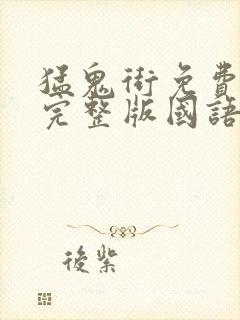 猛鬼街免費
完整版國語
後紫